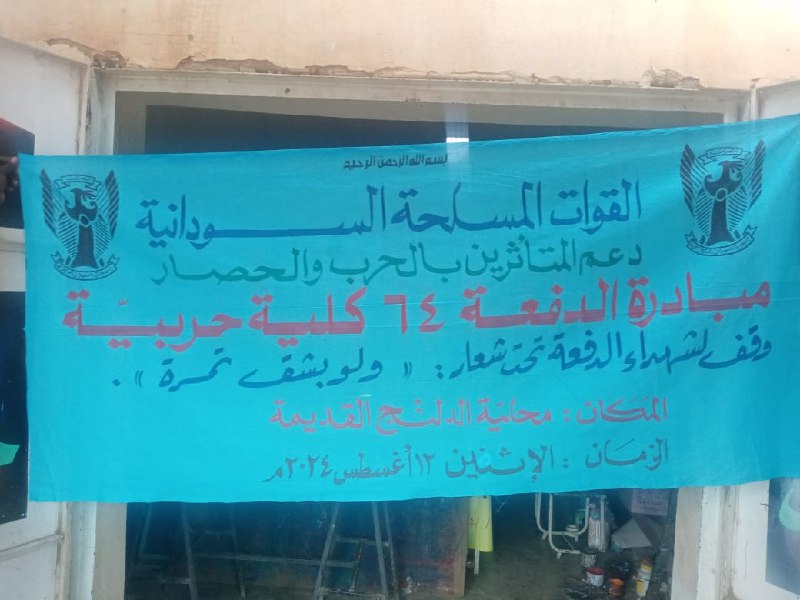 بسم الله الرحمن الرحيم
القوات المسلحة السودانية
دعم المتأثرين بالحرب والحصار
مبادرة الدفعة ٦٤ كلية حربيّة
وقف لشهداء الدفعة تحت شعار: « ولو بشق تمرة » .
المكان : محلية الدلنج القديمة
الزمان : الإثنين ١٢ أغسطس ٢٠٢٤م